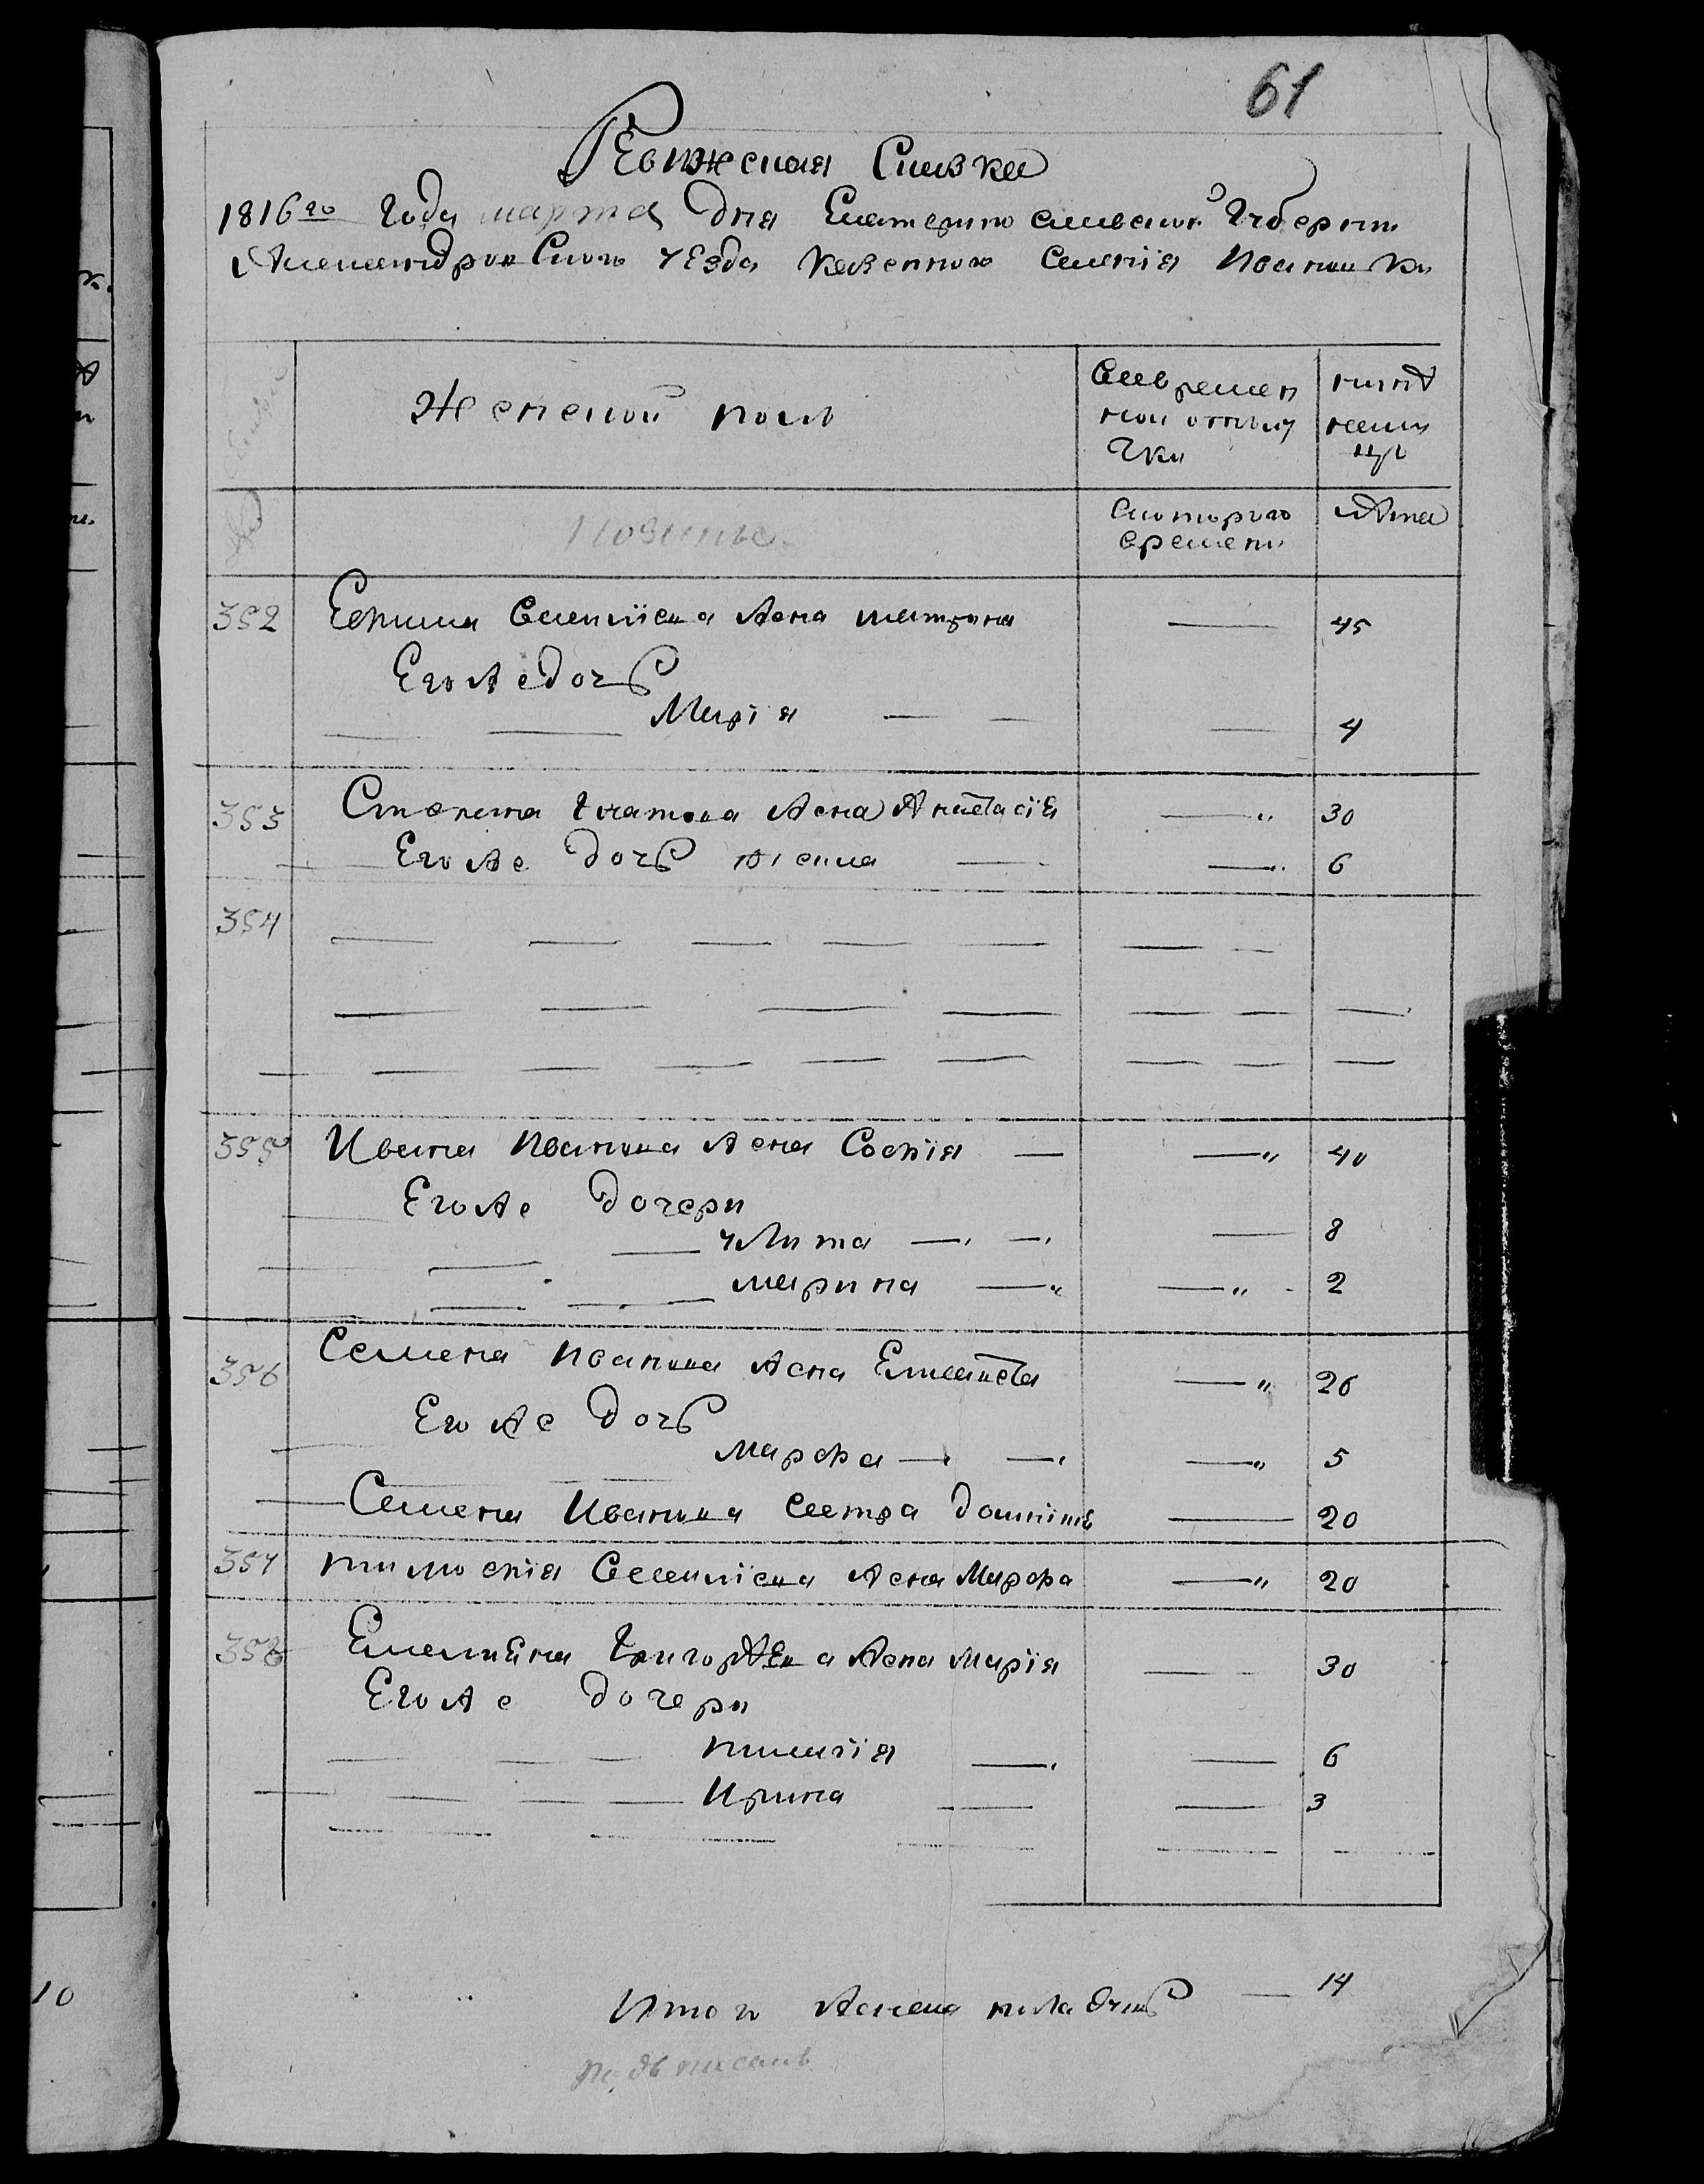 61
Ревижская Сказка
1816го Года марта Дня Екатеринославской Губернии
Александровского уезда казенного селения Ивановки
Женской полъ
Во временной отлучке
ныне налицо
С которого времени
Лета
352 Ефима Савелиева жена матрона 45
Его же дочь
Мария 4
353 Степана Игнатова жена Анастасия 30
Его же дочь 6
354
355 Ивана Иванова жена София 40
Его же дочери
улита 8
марина 2
356 Семена Иванова жена 26
Его же дочь
Марфа 5
Семена Иванова сестра 20
357 тимофия Савелиева жена Марфа 20
358 Емельяна Григорьева жена Мария 30
Его же дочери
6
Ирина 3
Итого женска пола душъ 14
10